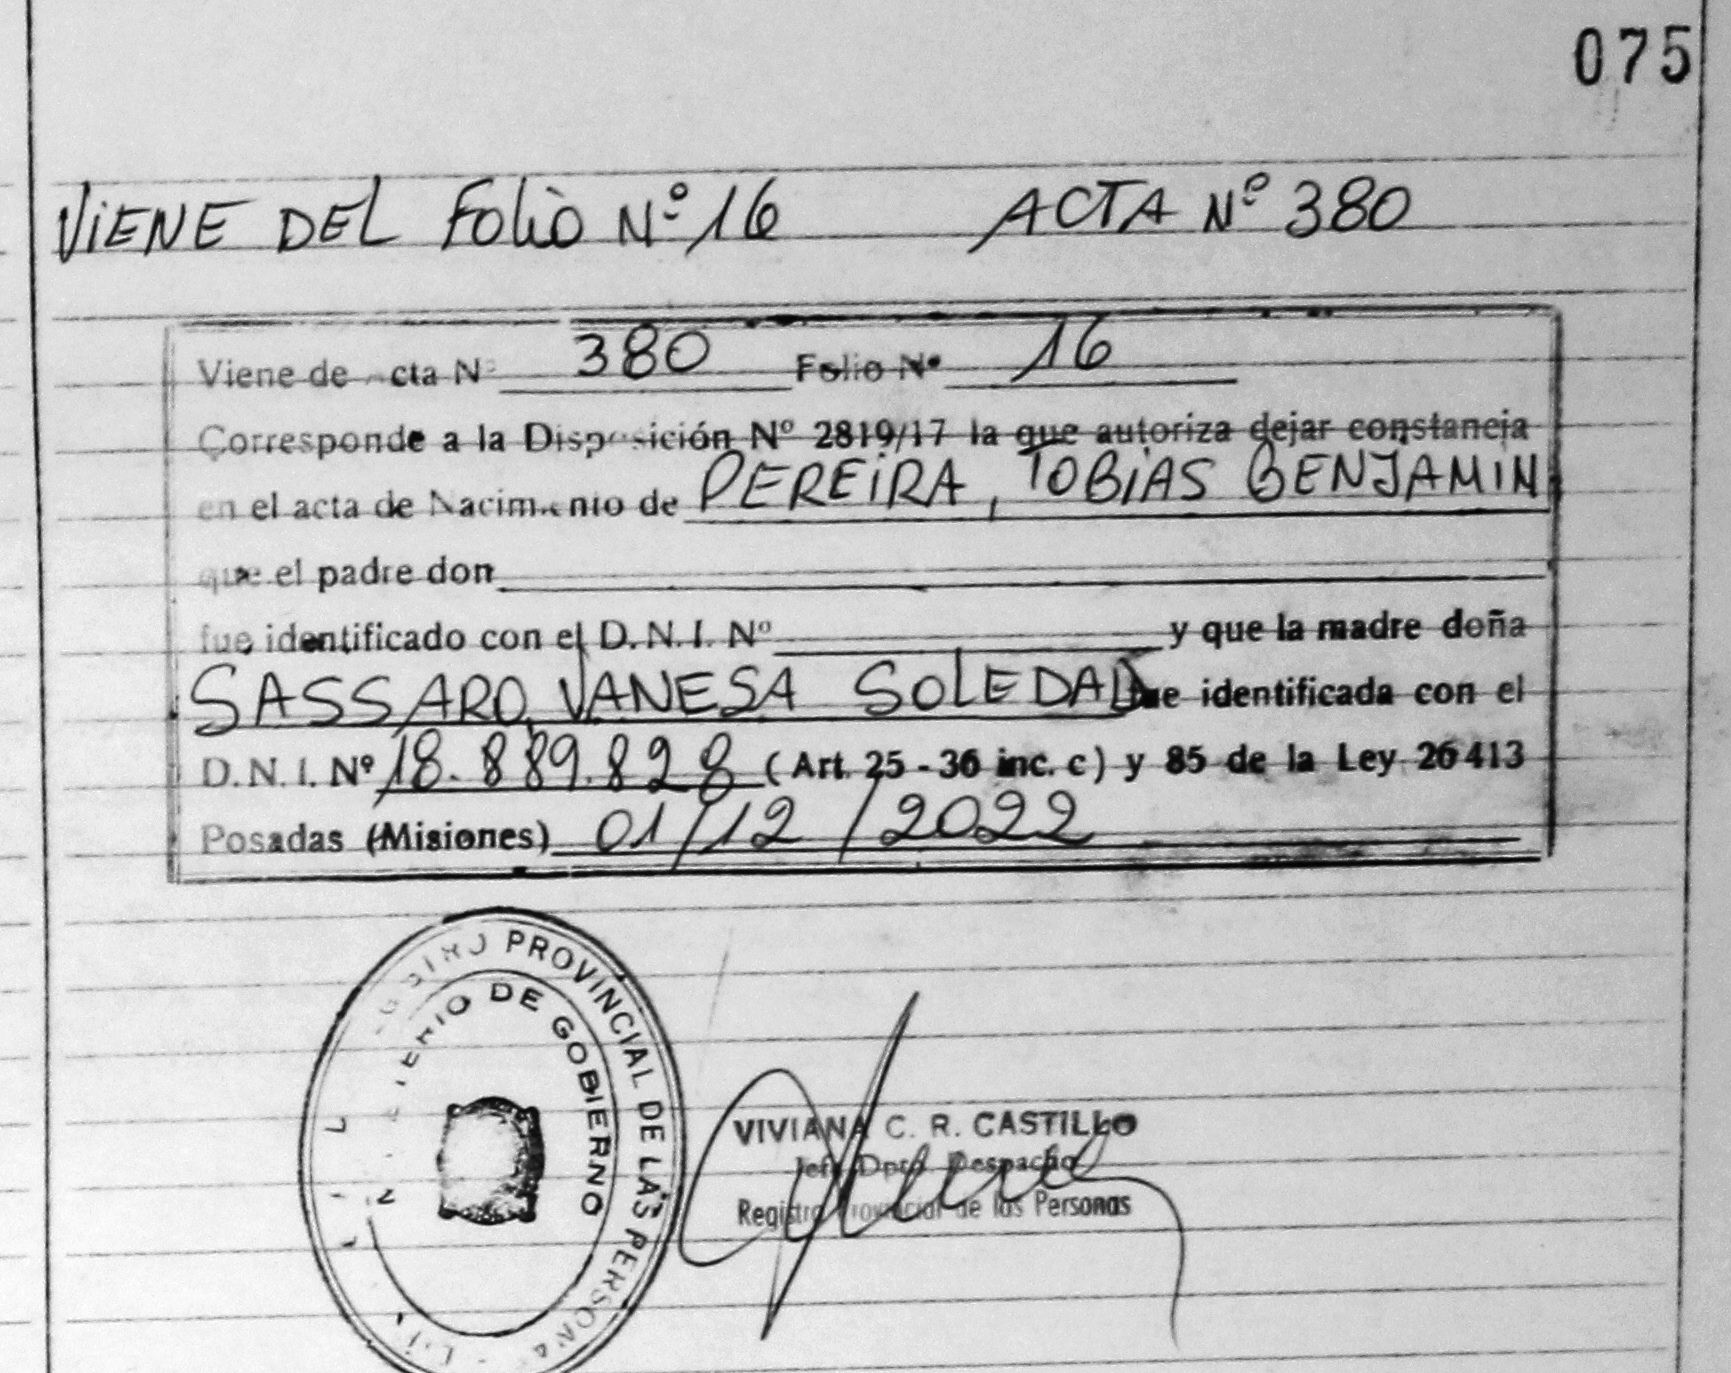 075
VIENE DEL FOLIO Nº 16 ACTA Nº 380
Viene de Acta Nº 380 Folio Nº 16
Corresponde a la Disposición Nº 2819/17 la que autoriza dejar constancia
en el acta de Nacimiento de PEREIRA, TOBIAS BENJAMIN
que el padre don
fue identificado con el D.N.I. Nº y que la madre doña
SASSARO, VANESA SOLEDAD fue identificada con el
D.N.I. Nº 18.889.828 (Art. 25 - 36 inc. c) y 85 de la Ley 26413
Posadas (Misiones) 01/12/2022
PROVINCIAL DE LAS PERSONAS
DE GOBIERNO
VIVIANA C. R. CASTILLO
Jefe Dpto. Despacho
Registro Provincial de las Personas